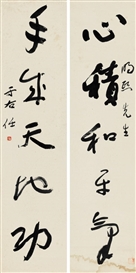 心積和平氣
明熙先生
手成天地功
于右任